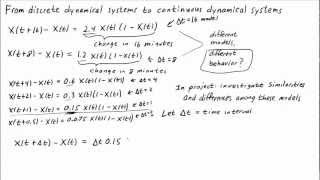 From discrete dynamical systems to continuous dynamical systems
X(t+16) - X(t) = 2.4 X(t)(1 - X(t)) ← Δt=16 model
change in 16 minutes
X(t+8) - X(t) = 1.2 X(t)(1 - X(t)) ← Δt=8
change in 8 minutes
different models,
different behavior?
X(t+4) - X(t) = 0.6 X(t)(1 - X(t)) ← Δt=4
X(t+2) - X(t) = 0.3 X(t)(1 - X(t)) ← Δt=2
X(t+1) - X(t) = 0.15 X(t)(1 - X(t)) ← Δt=1
X(t+0.5) - X(t) = 0.075 X(t)(1 - X(t))
In project: investigate similarities
and differences among these models
Let Δt = time interval
X(t+Δt) - X(t) = Δt 0.15